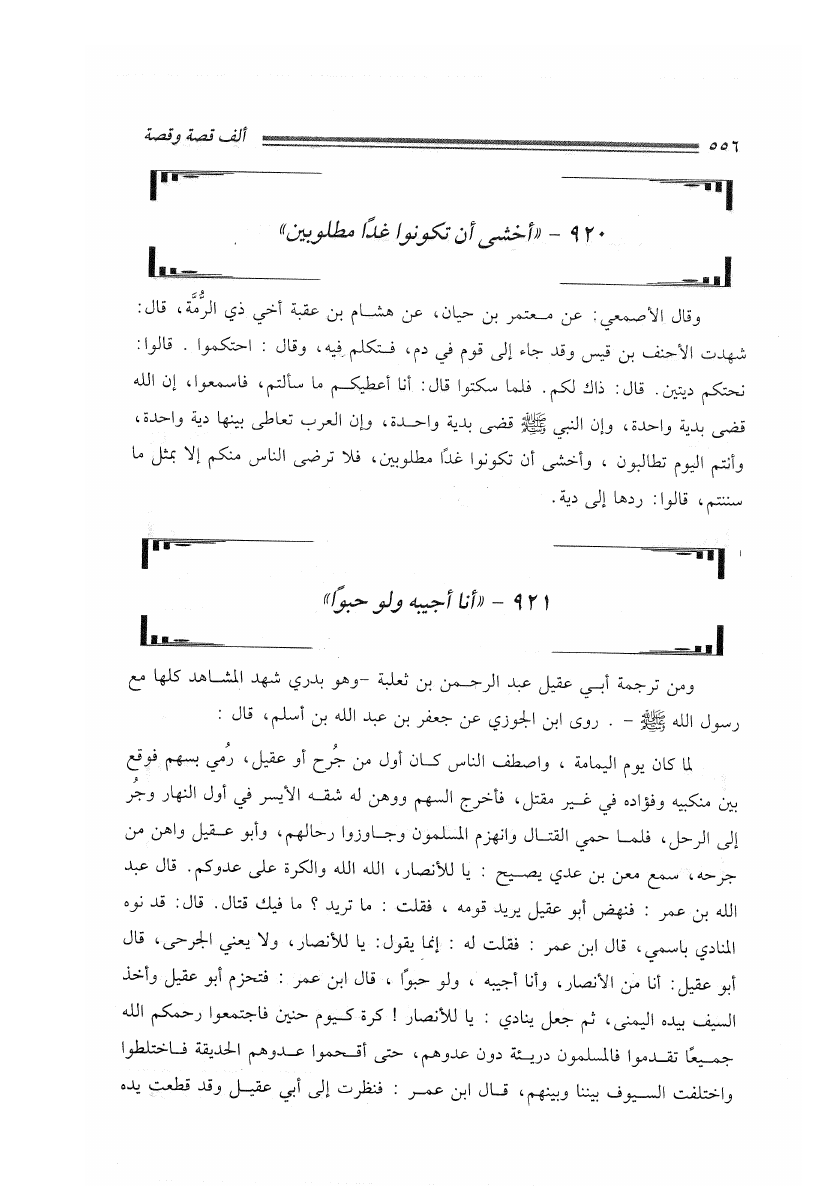 ٥٥٦ ألف قصة وقصة
٩٢٠ - «أخشى أن تكونوا غدًا مطلوبين»
وقال الأصمعي: عن معتمر بن حيان، عن هشام بن عقبة أخي ذي الرُّمَّة، قال:
شهدت الأحنف بن قيس وقد جاء إلى قوم في دم، فتكلم فيه، وقال : احتكموا . قالوا:
نحتكم ديتين. قال: ذاك لكم. فلما سكتوا قال: أنا أعطيكم ما سألتم، فاسمعوا، إن الله
قضى بدية واحدة، وإن النبي ﷺ قضى بدية واحدة، وإن العرب تعاطى بينها دية واحدة،
وأنتم اليوم تطالبون ، وأخشى أن تكونوا غدًا مطلوبين، فلا ترضى الناس منكم إلا بمثل ما
سننتم، قالوا: ردها إلى دية.
٩٢١ - «أنا أجيبه ولو حبوًا»
ومن ترجمة أبي عقيل عبد الرحمن بن ثعلبة -وهو بدري شهد المشاهد كلها مع
رسول الله ﷺ - . روى ابن الجوزي عن جعفر بن عبد الله بن أسلم، قال :
لما كان يوم اليمامة ، واصطف الناس كان أول من جُرح أو عقيل، رُمي بسهم فوقع
بين منكبيه وفؤاده في غير مقتل، فأخرج السهم ووهن له شقه الأيسر في أول النهار وجُر
إلى الرحل، فلما حمي القتال وانهزم المسلمون وجاوزوا رحالهم، وأبو عقيل واهن من
جرحه، سمع معن بن عدي يصيح : يا للأنصار، الله الله والكرة على عدوكم. قال عبد
الله بن عمر : فنهض أبو عقيل يريد قومه ، فقلت : ما تريد ؟ ما فيك قتال. قال: قد نوه
المنادي باسمي، قال ابن عمر : فقلت له : إنما يقول: يا للأنصار، ولا يعني الجرحى، قال
أبو عقيل: أنا من الأنصار، وأنا أجيبه ، ولو حبوًا ، قال ابن عمر : فتحزم أبو عقيل وأخذ
السيف بيده اليمنى، ثم جعل ينادي : يا للأنصار ! كرة كيوم حنين فاجتمعوا رحمكم الله
جميعًا تقدموا فالمسلمون دريئة دون عدوهم، حتى أقحموا عدوهم الحديقة فاختلطوا
واختلفت السيوف بيننا وبينهم، قال ابن عمر : فنظرت إلى أبي عقيل وقد قطعت يده